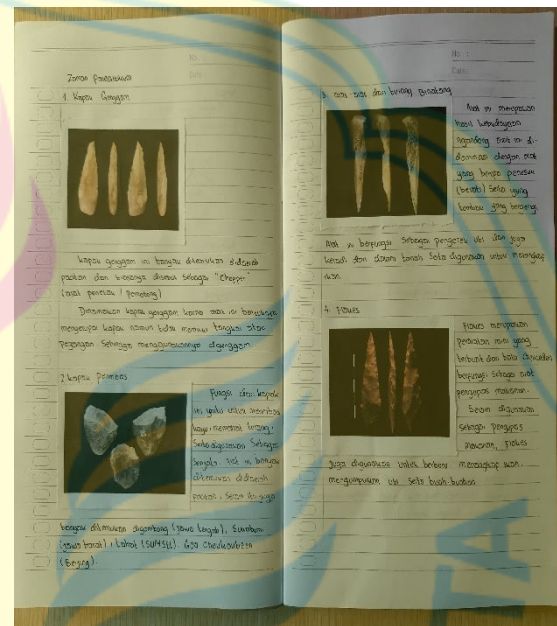 No :
Date :
Zaman Paleolitikum
1. Kapak Genggam
Kapak genggam ini banyak ditemukan didaerah
pacitan dan biasanya disebut sebagai "Chopper"
(alat penetak / pemotong)
Dinamakan kapak genggam karna alat ini bentuknya
menyerupai kapak namun tidak memiliki tangkai atau
pegangan sehingga menggunakannya digenggam.
2. kapak Perimbas
Fungsi dari kapak
ini yaitu untuk merimbas
kayu, memahat tulang,
Serta digunakan Sebagai
Senjata. ini banyak
ditemukan didaerah
pacitan, Selain itu juga
banyak ditemukan (jawa tengah), Sukabumi
(jawa barat), Lahat (SUMSEL), Goa Choukoutien
(Beijing).
No :
Date :
3. alat alat dari tulang binatang
Alat ini merupakan
hasil kebudayaan
Ngandong alat ini di-
dominasi dengan alat
yang berupa penusuk
(belati) Serta ujung
tombak yang bergerigi
Alat ini berfungsi Sebagai pengorek ubi dan juga
keladi dari dalam tanah Serta digunakan untuk menangkap
ikan.
4. Flakes
Flakes merupakan
peralatan mini yang
terbuat dari batu Chalcedon
berfungsi Sebagai alat
pengupas makanan.
Selain digunakan
Sebagai pengupas
makanan, Flakes
Juga digunakan untuk berburu, menangkap ikan,
mengumpulkan ubi Serta buah-buahan
TA